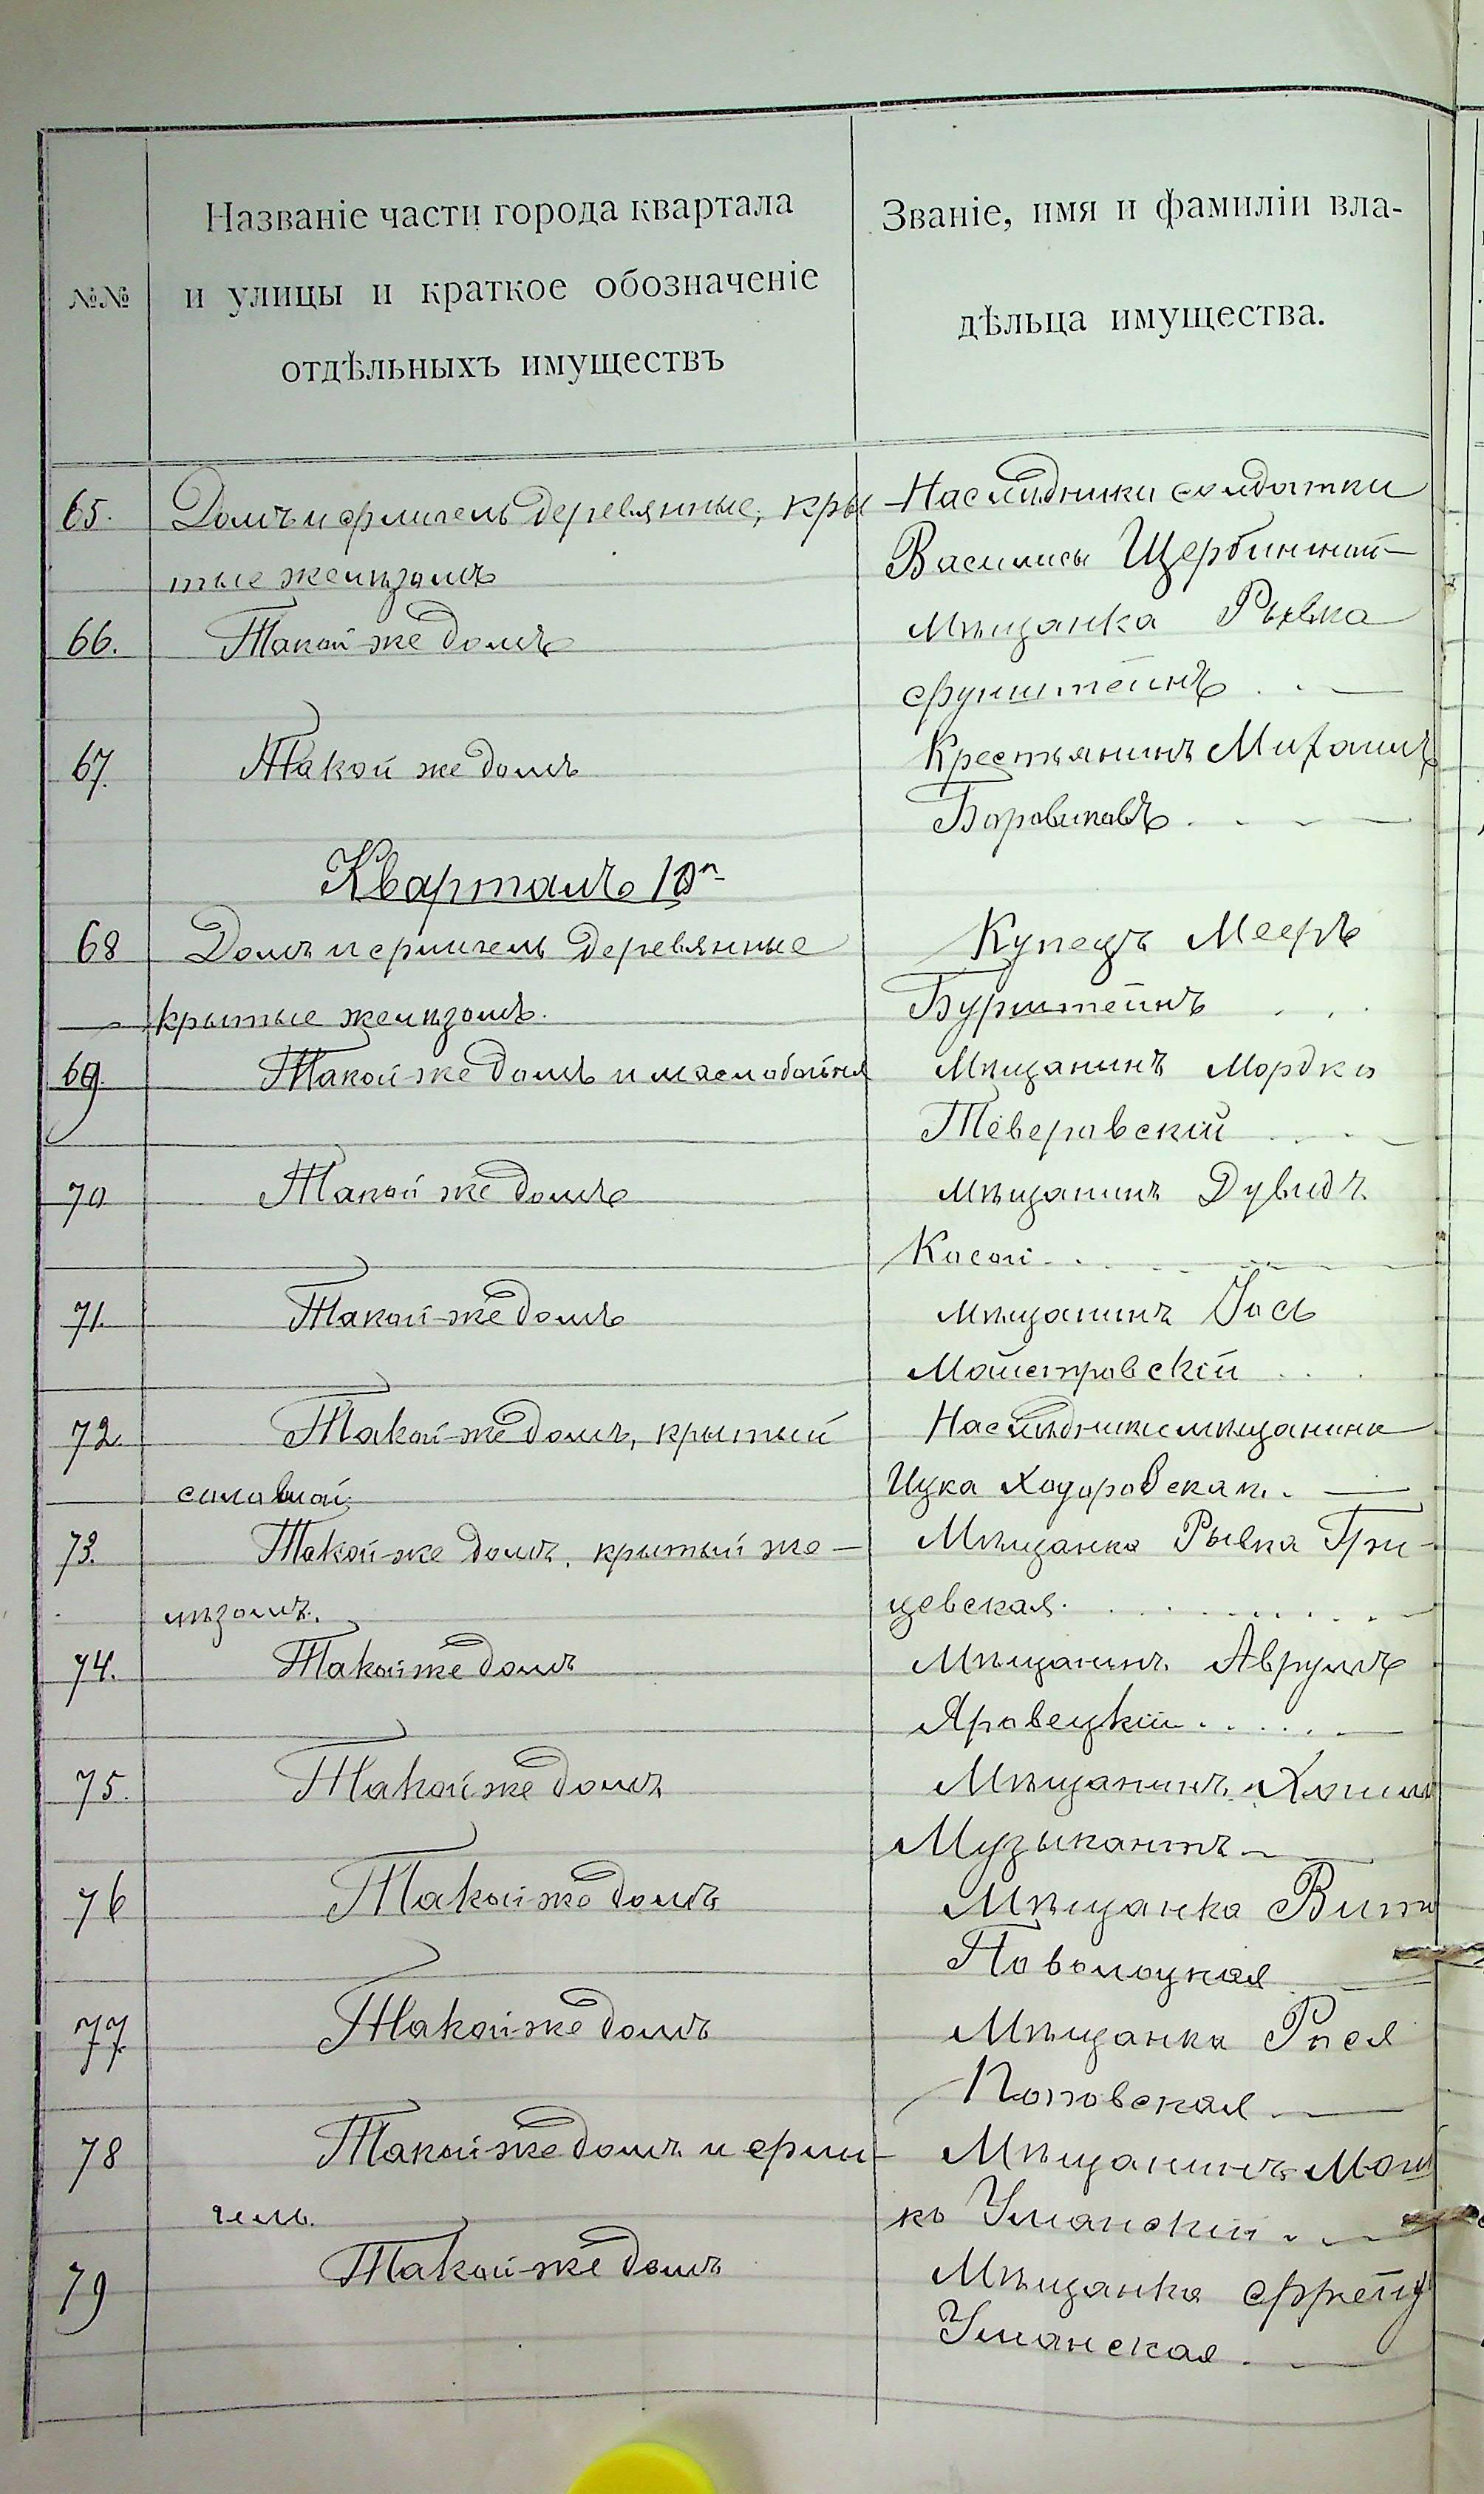 №№
Названіе части города квартала
и улицы и краткое обозначеніе
отдѣльныхъ имуществъ
Званіе, имя и фамиліи вла-
дѣльца имущества.
65. Домъ и флигель деревянные, кры
тые желѣзомъ
Наслѣдники солдатки
Василисы Щербининой
66. Такой-же домъ
Мѣщанка Рывка
Фунштейнъ
67. Такой же домъ
Крестьянинъ Михаилъ
Боровиковъ
Кварталъ 10й
68 Домъ и флигель деревянные
крытые желѣзомъ.
Купецъ Мееръ
Бурштейнъ
69. Такой-же домъ и маслобойня
Мѣщанинъ Мордко
Теверовскій
70 Такой же домъ
Мѣщанинъ Дувидъ
Косой
71. Такой-же домъ
Мѣщанинъ Іось
Майстровскій
72. Такой-же домъ, крытый
соломой.
Наслѣдники мѣщанина
Ицка Ходоровскаго.
73. Такой-же домъ, крытый же-
лѣзомъ.
Мѣщанка Рывка Гри-
цевская.
74. Такой же домъ
Мѣщанинъ Аврумъ
Яровецкій
75. Такой же домъ
Мѣщанинъ
Музыкантъ
76 Такой-же домъ
Мѣщанка
Поволоцкая
77. Такой-же домъ
Мѣщанка Рося
Поповская
78 Такой-же домъ и фли-
гель.
Мѣщанинъ Мош
ко Уманскій
79 Такой-же домъ
Мѣщанка
Уманская